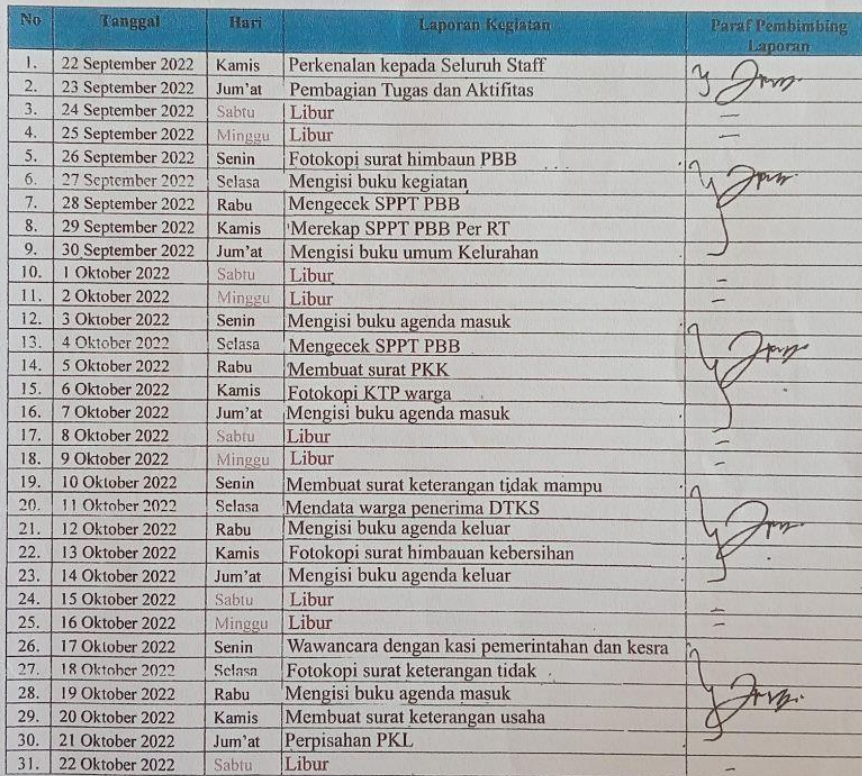 No Tanggal Hari Laporan Kegiatan Paraf Pembimbing Laporan
1. 22 September 2022 Kamis Perkenalan kepada Seluruh Staff
2. 23 September 2022 Jum'at Pembagian Tugas dan Aktifitas
3. 24 September 2022 Sabtu Libur
4. 25 September 2022 Minggu Libur
5. 26 September 2022 Senin Fotokopi surat himbaun PBB
6. 27 September 2022 Selasa Mengisi buku kegiatan
7. 28 September 2022 Rabu Mengecek SPPT PBB
8. 29 September 2022 Kamis Merekap SPPT PBB Per RT
9. 30 September 2022 Jum'at Mengisi buku umum Kelurahan
10. 1 Oktober 2022 Sabtu Libur
11. 2 Oktober 2022 Minggu Libur
12. 3 Oktober 2022 Senin Mengisi buku agenda masuk
13. 4 Oktober 2022 Selasa Mengecek SPPT PBB
14. 5 Oktober 2022 Rabu Membuat surat PKK
15. 6 Oktober 2022 Kamis Fotokopi KTP warga
16. 7 Oktober 2022 Jum'at Mengisi buku agenda masuk
17. 8 Oktober 2022 Sabtu Libur
18. 9 Oktober 2022 Minggu Libur
19. 10 Oktober 2022 Senin Membuat surat keterangan tidak mampu
20. 11 Oktober 2022 Selasa Mendata warga penerima DTKS
21. 12 Oktober 2022 Rabu Mengisi buku agenda keluar
22. 13 Oktober 2022 Kamis Fotokopi surat himbauan kebersihan
23. 14 Oktober 2022 Jum'at Mengisi buku agenda keluar
24. 15 Oktober 2022 Sabtu Libur
25. 16 Oktober 2022 Minggu Libur
26. 17 Oktober 2022 Senin Wawancara dengan kasi pemerintahan dan kesra
27. 18 Oktober 2022 Selasa Fotokopi surat keterangan tidak
28. 19 Oktober 2022 Rabu Mengisi buku agenda masuk
29. 20 Oktober 2022 Kamis Membuat surat keterangan usaha
30. 21 Oktober 2022 Jum'at Perpisahan PKL
31. 22 Oktober 2022 Sabtu Libur